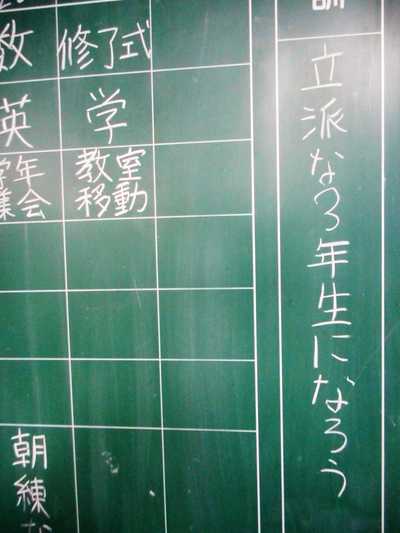 訓
立派な3年生になろう
修了式
学
教室
移動
数
英
学年
集会
朝練な